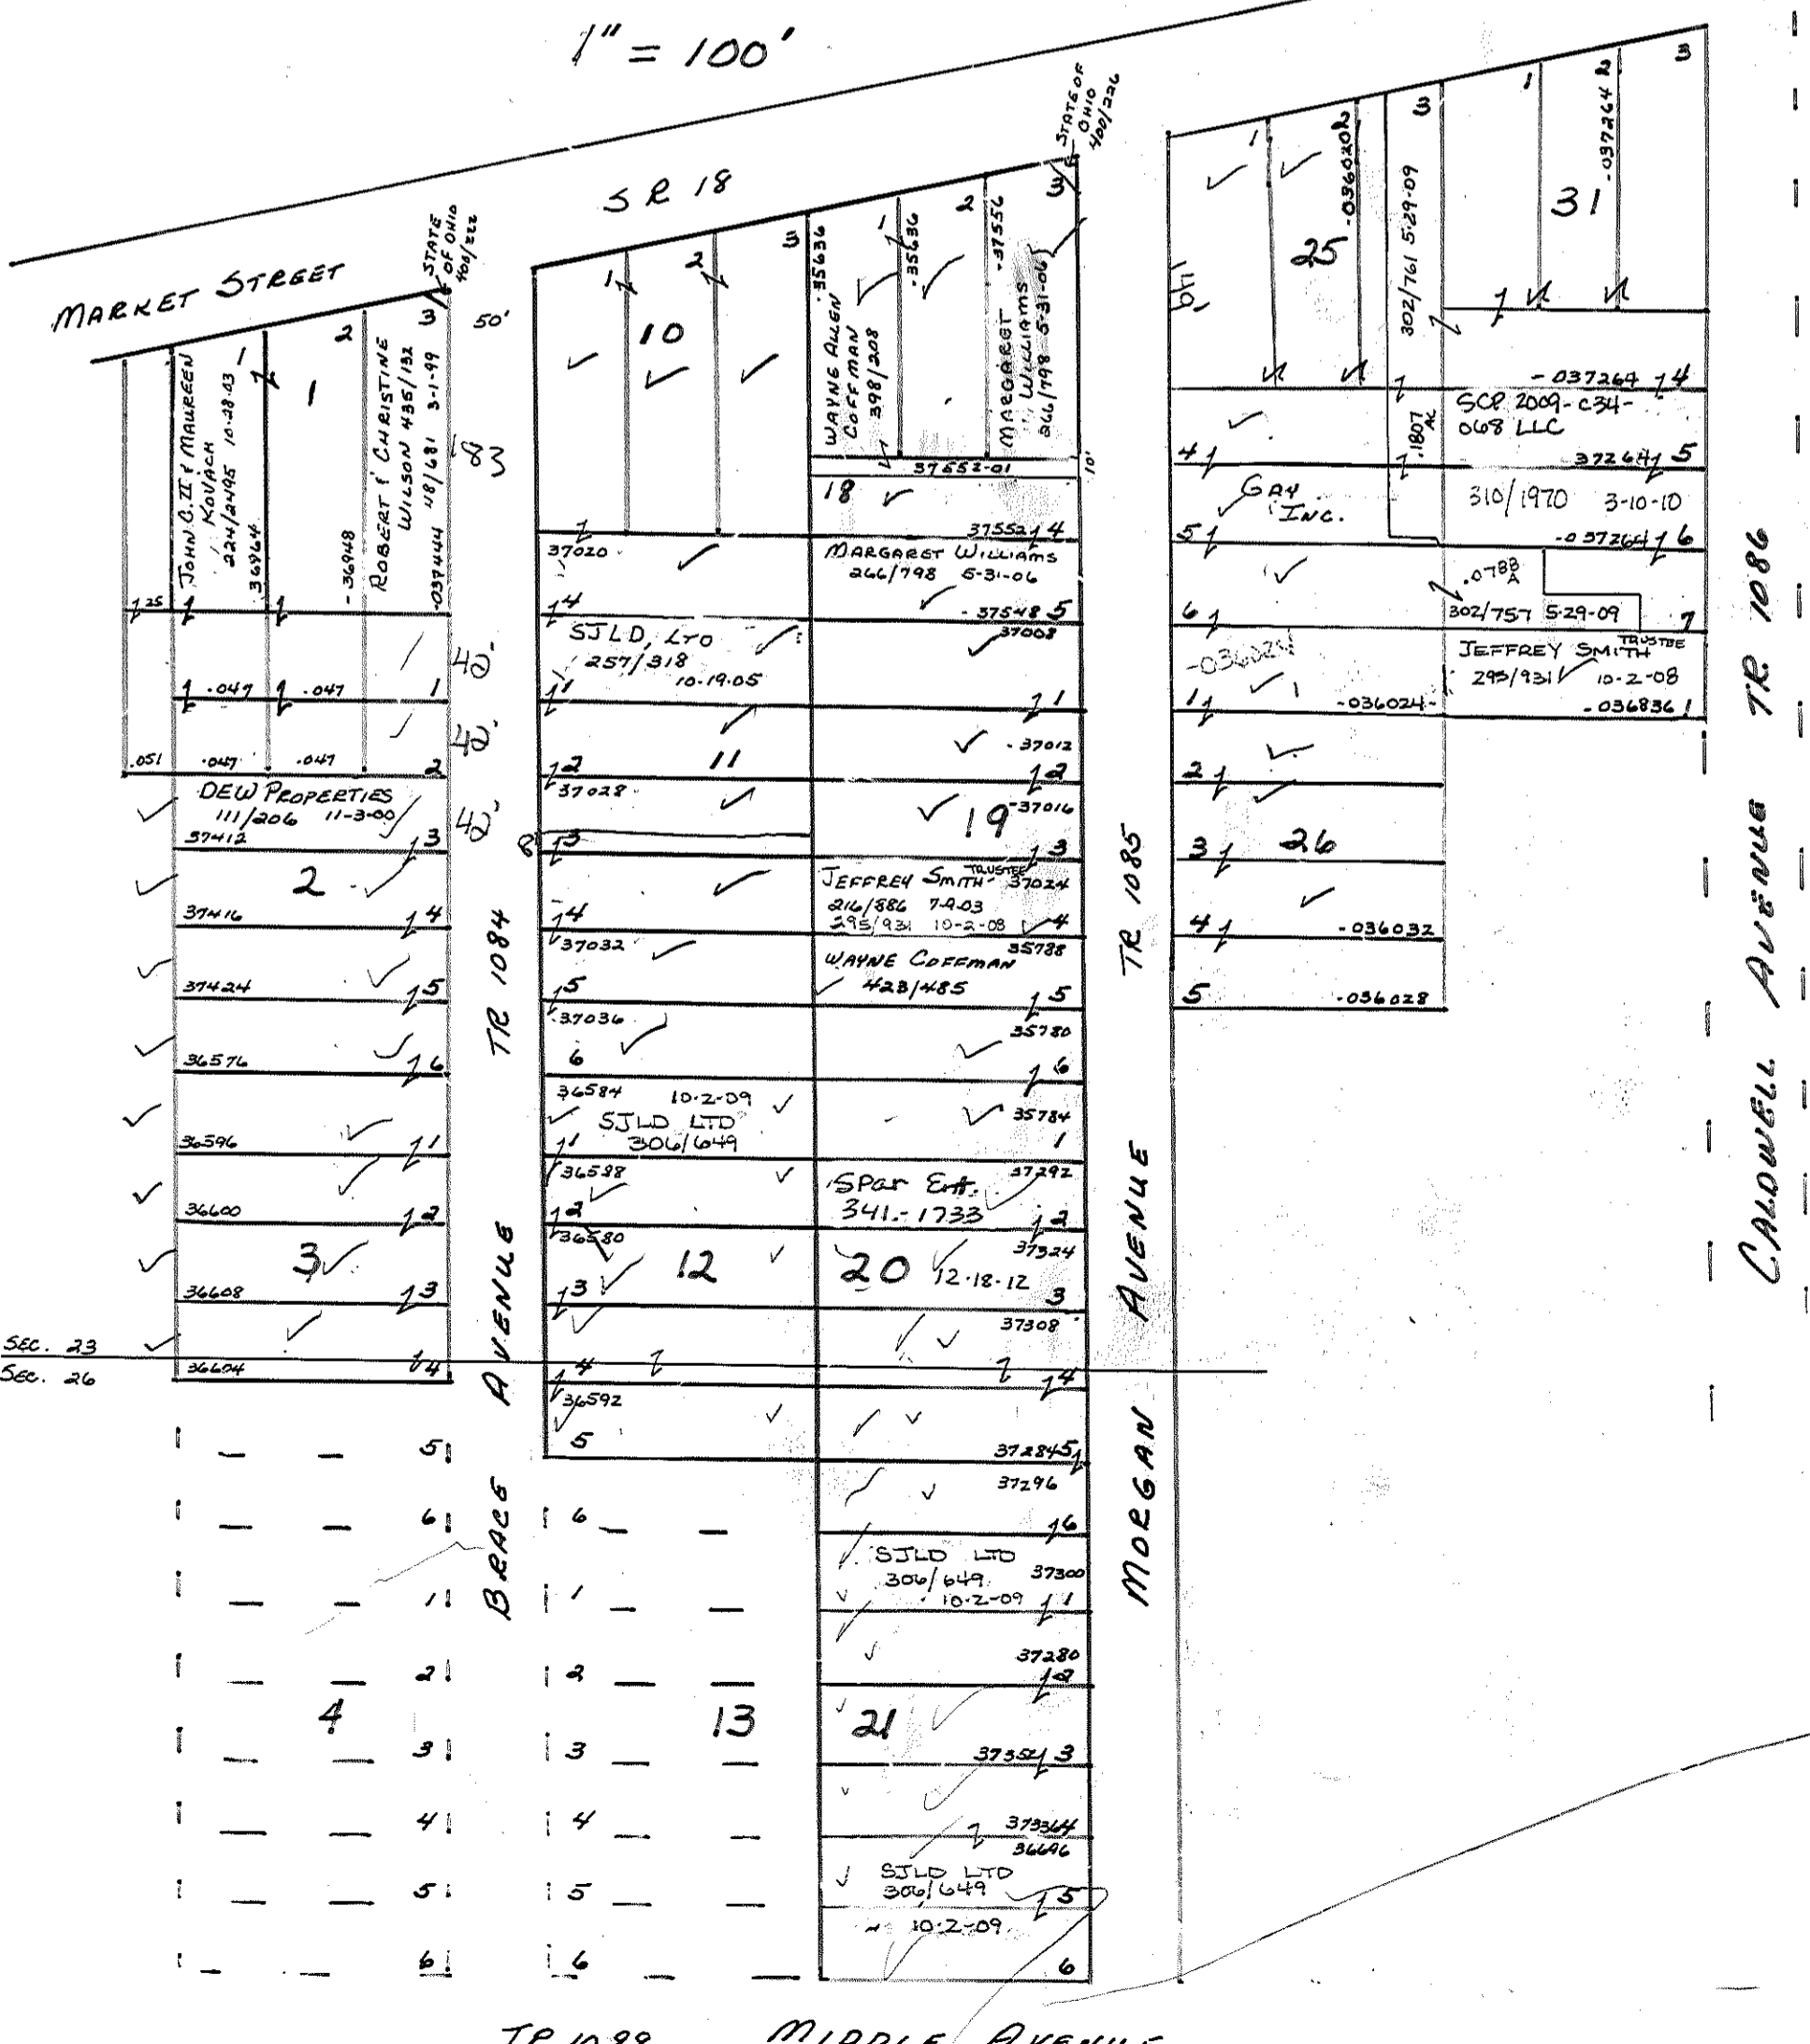 1" = 100'
SR 18
MARKET STREET
STATE
OF OHIO
400/222
STATE OF
OHIO
400/226
50'
183
40'
40'
40'
1
2
3
1
JOHN C. III & MAUREEN
KOVACH
224/2495 10-28-03
36964
-36948
ROBERT & CHRISTINE
WILSON 435/132
48/681 3-1-99
-037444
25
.047
.047
1
.051
.047
.047
2
DEW PROPERTIES
111/206 11-3-00
37412
3
2
37416
4
37424
5
36576
6
36596
1
36600
2
3
36608
3
SEC. 23
SEC. 26
36604
4
5
6
1
2
4
3
4
5
6
TR 1084
BRACE AVENUE
1
2
3
10
37020
4
SJLD, LTD
257/318
10-19-05
1
2
11
37028
8'
3
4
37032
5
37036
6
36584
10-2-09
SJLD LTD
306/649
1
36588
2
36580
12
3
4
36592
5
6
1
2
13
3
4
5
6
35636
WAYNE ALLEN
COFFMAN
398/208
1
-35636
2
-37556
3
MARGARET
WILLIAMS
266/798 5-31-06
37552-01
10'
18
37552
4
MARGARET WILLIAMS
266/798 5-31-06
-37548
5
37008
1
-37012
2
-37016
19
3
JEFFREY SMITH TRUSTEE
37024
216/886 7-9-03
295/931 10-2-08
4
35788
WAYNE COFFMAN
423/485
5
35780
6
35784
1
37292
Spar Ent.
341-1733
2
37324
20
12-18-12
3
37308
4
37284
5
37296
6
SJLD LTD
306/649
37300
10-2-09
1
37280
2
21
37352
3
37336
4
36696
SJLD LTD
306/649
5
10-2-09
6
TR 1085
MORGAN AVENUE
1
-036020
2
3
25
149'
302/761 5-29-09
.1807
AC
4
GAY
INC.
5
6
-036024
1
-036024-
2
3
26
4
-036032
5
-036028
1
2
-037264
3
31
-037264
4
SCP 2009-C34-
068 LLC
37264
5
310/1970 3-10-10
-037264
6
.0788
A
302/757 5-29-09
7
JEFFREY SMITH TRUSTEE
295/931 10-2-08
-036836
1
CALDWELL AVENUE TR 1086
TR 1088 MIDDLE AVENUE